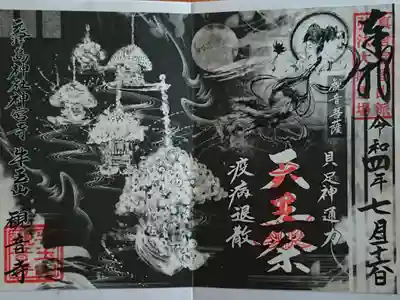 奉拝
令和四年七月
観音菩薩
具足神通力
天王祭
疫病退散
元津島神社神宮寺 牛王山 観音寺